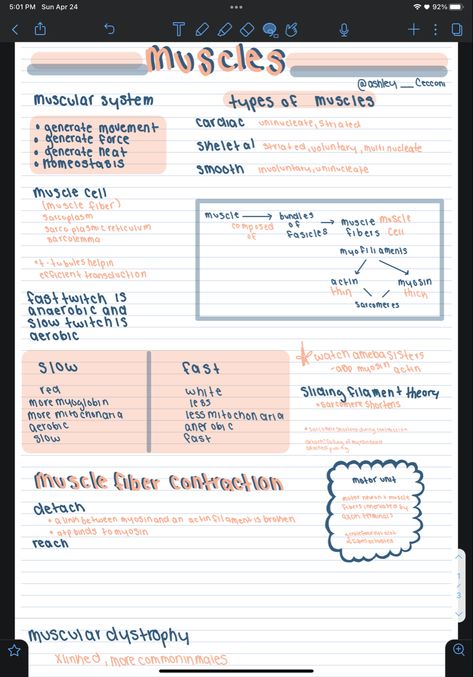 5:01 PM Sun Apr 24
92%
muscles
@ashley__cecconi
muscular system
• generate movement
• generate force
• generate heat
• homeostasis
types of muscles
cardiac uninucleate, striated
skeletal striated, voluntary, multinucleate
smooth involuntary, uninucleate
muscle cell
(muscle fiber)
sarcoplasm
sarcoplasmic reticulum
sarcolemma
*t-tubules help in
efficient transduction
muscle → bundles of fasicles → muscle fibers
composed of
muscle cell
myofiliaments
actin myosin
thin thick
sarcomeres
fast twitch is
anaerobic and
slow twitch is
aerobic
slow fast
red white
more myoglobin less
more mitochondria less mitochondria
aerobic anerobic
slow fast
watch amebasisters
actin
sliding filament theory
*sarcomere shortens
*sarcomere shortens during contraction
muscle fiber contraction
detach
* a link between myosin and an actin filament is broken
* atp binds to myosin
reach
motor unit
motor neuron & muscle
fibers innervated by
axon terminals
1
3
muscular dystrophy
xlinked, more common in males